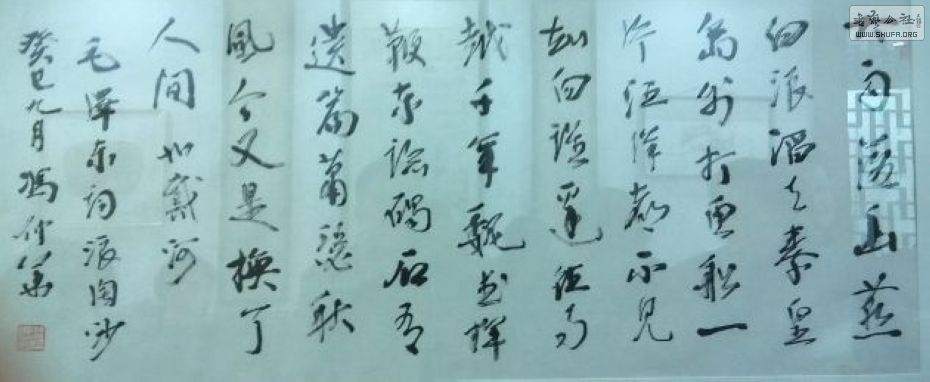 大雨落幽燕
白浪滔天秦皇
岛外打鱼船一
片汪洋都不见
知向谁边往事
越千年魏武挥
鞭东临碣石有
遗篇萧瑟秋
风今又是换了
人间 北戴河
毛泽东词浪淘沙
癸巳九月冯仲
书法公社
WWW.SHUFA.ORG